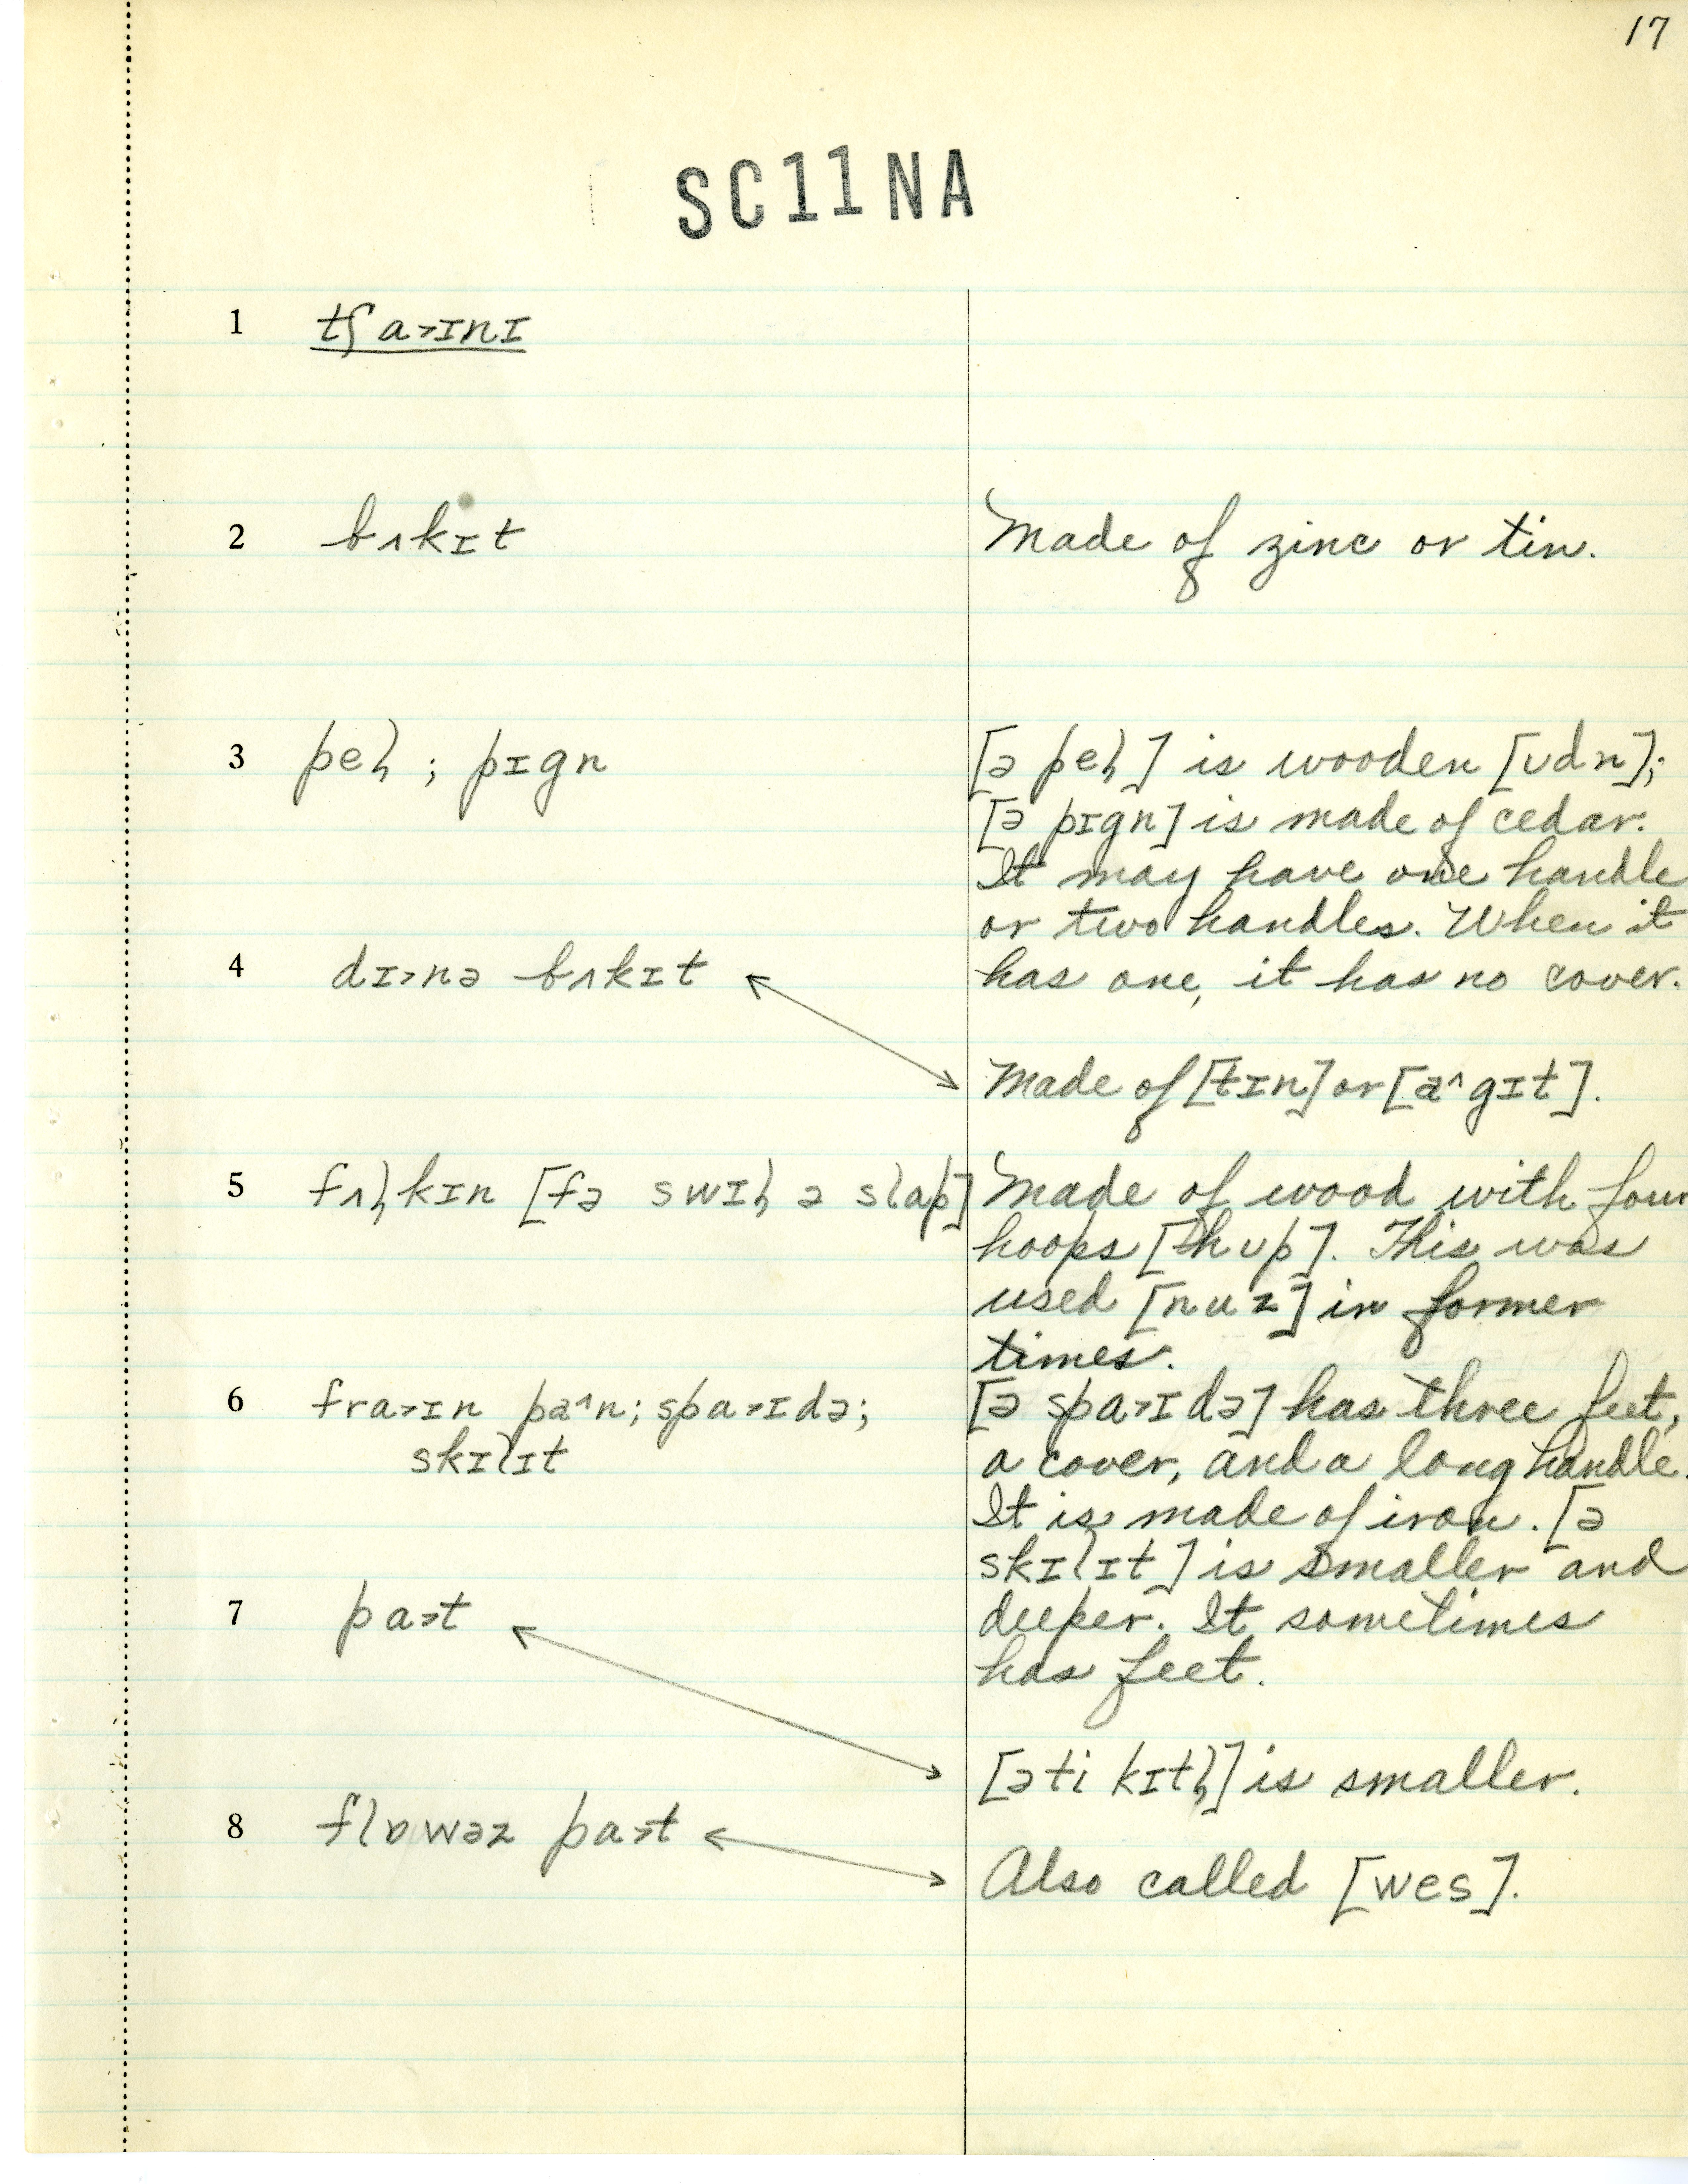 17
SC11NA
1 tʃa˃ɪnɪ
2 bʌkɪt Made of zinc or tin.
3 peɫ ; pɪgn [ə peɫ] is wooden [ʊdn];
[ə pɪgn] is made of cedar.
It may have one handle
or two handles. When it
4 dɪ˃nə bʌkɪt has one, it has no cover.
Made of [tɪn] or [a^gɪt].
5 fʌɫkɪn [fə swɪɫ ə slap] Made of wood with four
hoops [hʊp]. This was
used [nuz] in former
times.
6 fra˃ɪn pa^n; spa˃ɪdə; [ə spa˃ɪdə] has three feet,
skɪlɪt a cover, and a long handle.
It is made of iron. [ə
skɪlɪt] is smaller and
7 pa˃t deeper. It sometimes
has feet.
[ə ti kɪtɫ] is smaller.
8 flɒwəz pa˃t Also called [wes].